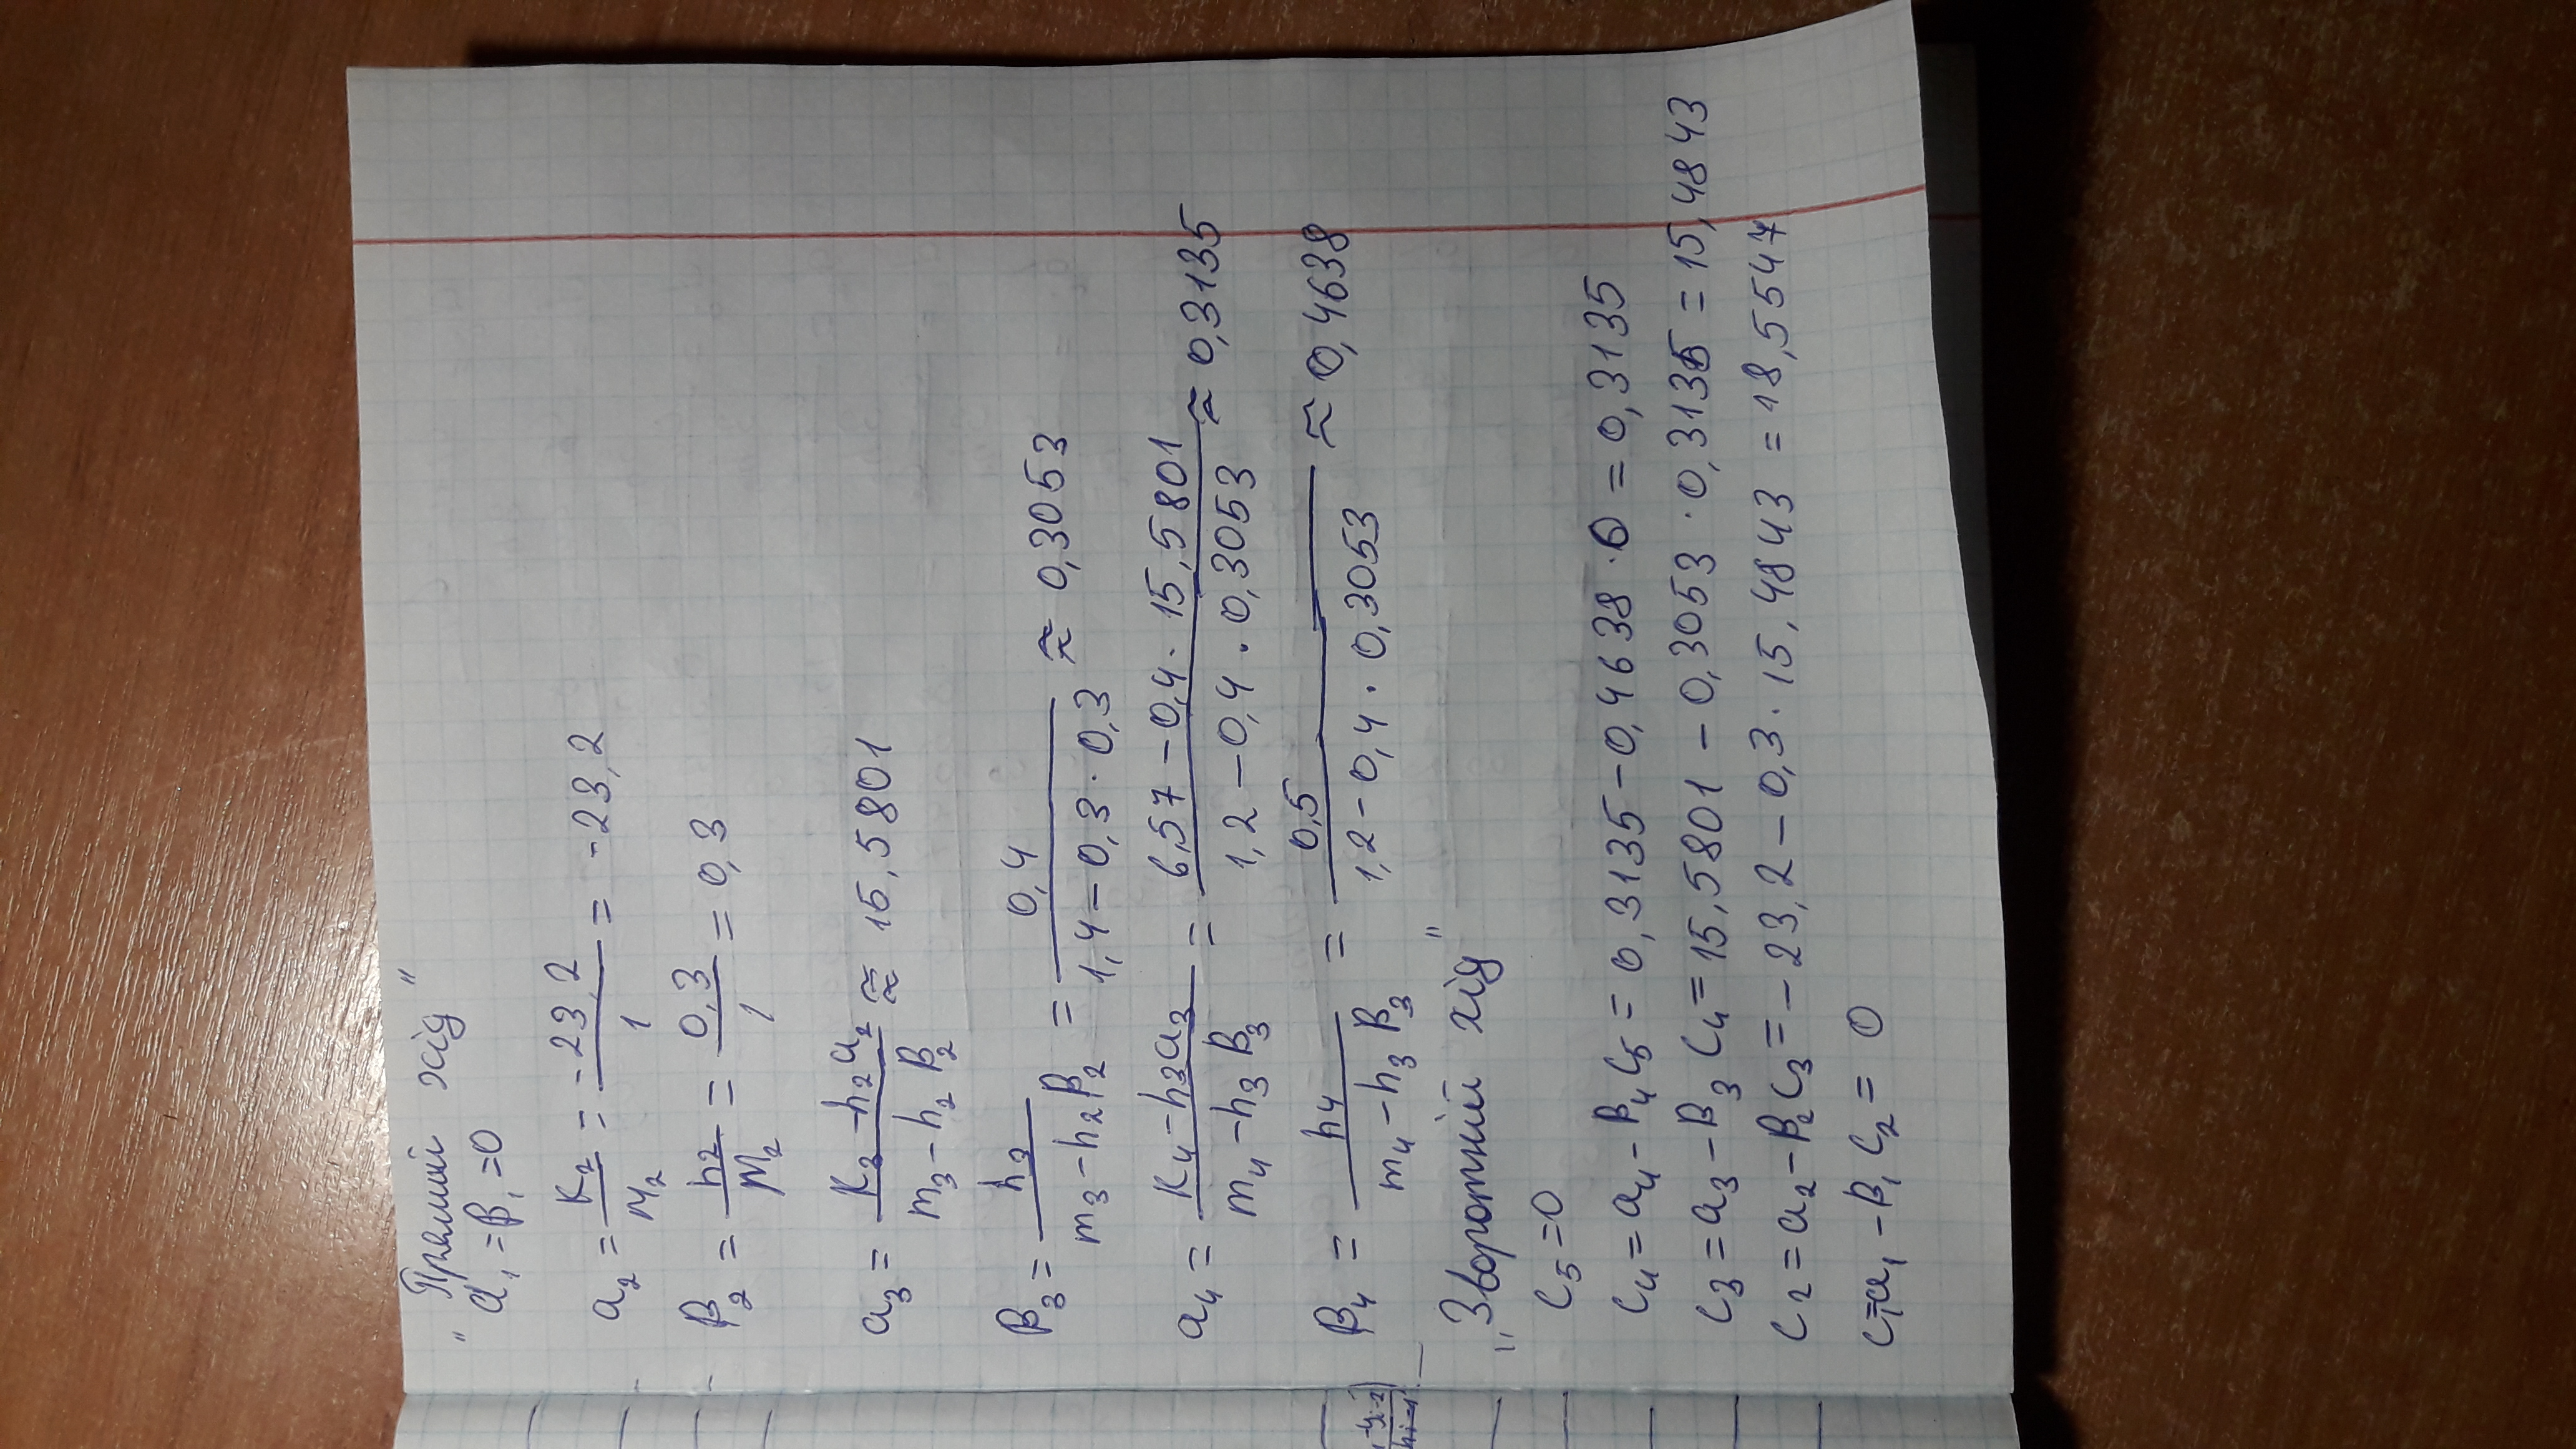 „Прямий хід"
α₁ = β₁ = 0
a₂ = K₂/M₂ = -23,2/1 = -23,2
β₂ = h₂/M₂ = 0,3/1 = 0,3
a₃ = (K₃ - h₂a₂)/(m₃ - h₂β₂) ≈ 15,5801
β₃ = h₃/(m₃ - h₂β₂) = 0,4/(1,4 - 0,3 · 0,3) ≈ 0,3053
a₄ = (K₄ - h₃a₃)/(m₄ - h₃β₃) = (6,57 - 0,4 · 15,5801)/(1,2 - 0,4 · 0,3053) ≈ 0,3135
β₄ = h₄/(m₄ - h₃β₃) = 0,5/(1,2 - 0,4 · 0,3053) ≈ 0,4638
„Зворотній хід"
c₅ = 0
c₄ = a₄ - β₄c₅ = 0,3135 - 0,4638 · 0 = 0,3135
c₃ = a₃ - β₃c₄ = 15,5801 - 0,3053 · 0,3135 = 15,4843
c₂ = a₂ - β₂c₃ = -23,2 - 0,3 · 15,4843 = 18,5547
c₁ = a₁ - β₁c₂ = 0